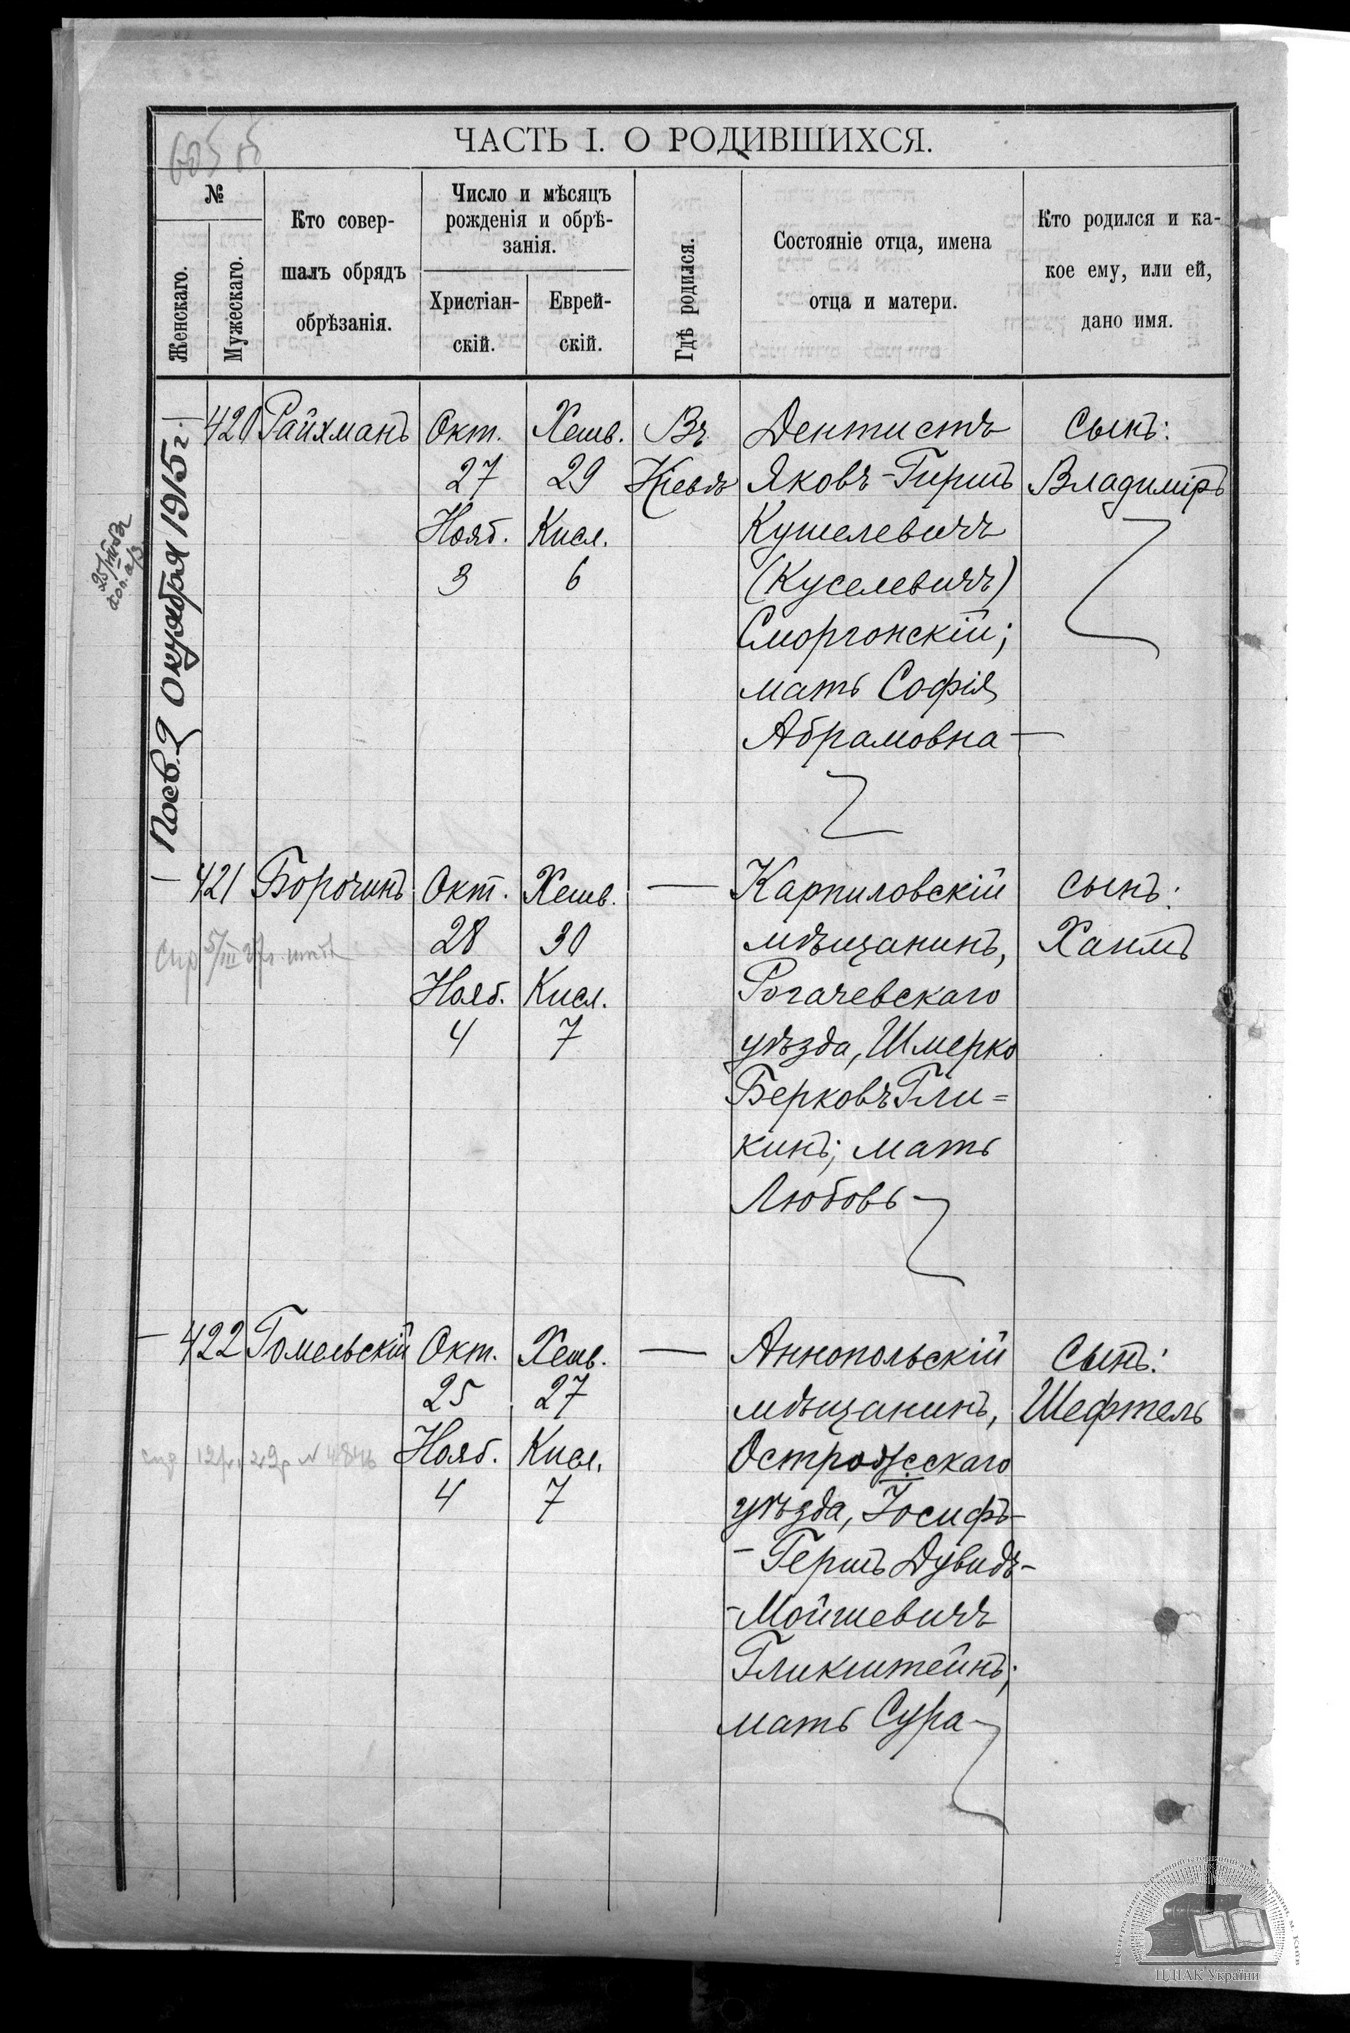 ЧАСТЬ I. О РОДИВШИХСЯ.
№
Женскаго.
Мужескаго.
Кто совер-
шалъ обрядъ
обрѣзанія.
Число и мѣсяцъ
рожденія и обрѣ-
занія.
Христіан-
скій.
Еврей-
скій.
Гдѣ родился.
Состояніе отца, имена
отца и матери.
Кто родился и ка-
кое ему, или ей,
дано имя.
Посв. 9 Октября 1915 г.
420
Райхманъ
Окт.
27
Нояб.
3
Хешв.
29
Кисл.
6
Въ
Кіевѣ
Дентистъ
Яковъ-Гиршъ
Кушелевичъ
(Куселевичъ)
Сморгонскій;
мать Софія
Абрамовна —
Сынъ:
Владиміръ
— 421
Борочинъ
Окт.
28
Нояб.
4
Хешв.
30
Кисл.
7
—
Карпиловскій
мѣщанинъ,
Рогачевскаго
уѣзда, Шмерко
Берковъ Гли=
кинъ; мать
Любовь
сынъ:
Хаимъ
— 422
Гомельскій
Окт.
25
Нояб.
4
Хешв.
27
Кисл.
7
—
Аннопольскій
мѣщанинъ,
Острожскаго
уѣзда, Іосифъ-
-Гершъ Дувидъ-
-Мойшевичъ
Гликштейнъ;
мать Сура
Сынъ:
Шефтель
ЦДІАК України